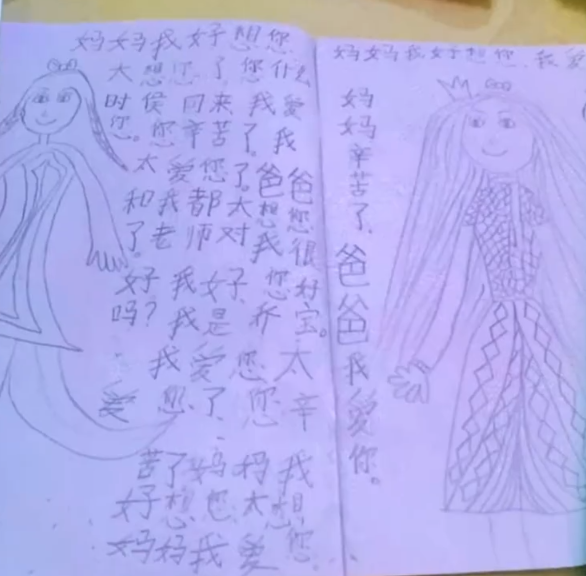 妈妈我好想您
大想您了您什么
时侯回来我爱
您。您辛苦了。我
太爱您了。爸爸
和我都太想您
了。老师对我很
好我好您对
吗?我是乔宝。
我爱您太
爱您了、您辛
苦了妈妈我
好想您太想
妈妈我爱您
妈妈我好想您、我爱
妈妈辛苦了、爸爸我爱你。